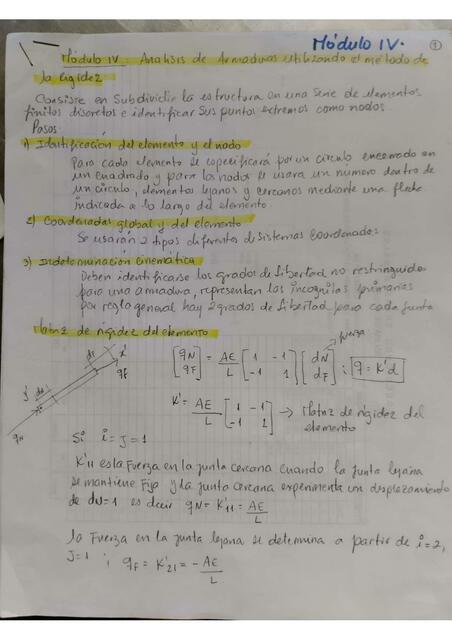 Módulo IV. ①
Módulo IV. Analisis de Armaduras utilizando el método de
la Rigidez
Consiste en Subdividir la estructura en una Serie de elementos
finitos discretos e identificar Sus puntos extremos como nodos.
Pasos.
1) Identificación del elemento y el nodo
Para cada elemento se especificará por un circulo encerrado en
un cuadrado y para los nodos se usara un número dentro de
un circulo, elementos lejanos y cercanos mediante una flecha
indicada a lo largo del elemento.
2) Coordenadas global y del elemento
Se usarán 2 tipos diferentes de sistemas Coordenados
3) Indeterminación Cinemática
Deben identificarse los grados de libertad no restringidos
para una armadura, representan las incognitas primarias
por regla general hay 2 grados de libertad para cada junta
Matriz de rigidez del elemento
fuerza
[qN qF] = AE/L [1 -1 -1 1] [dN dF] ; q = K'd
K' = AE/L [1 -1 -1 1] → Matriz de rigidez del
elemento
y' dN dF x' qF qN
Si i = J = 1
K'11 es la Fuerza en la junta cercana cuando la junta lejana
se mantiene Fija y la junta cercana experimenta un desplazamiento
de dN=1 es decir qN = K'11 = AE/L
la Fuerza en la junta lejana se determina a partir de i=2,
J=1 ; qF = K'21 = -AE/L